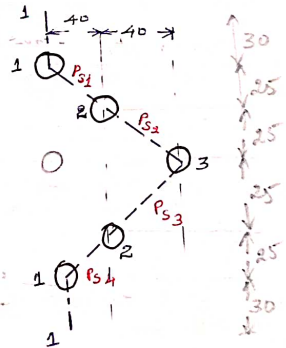 1
40 40
30
1 Ps1
25
2 Ps2
25
3
Ps3
25
2
25
1 Ps4
30
1